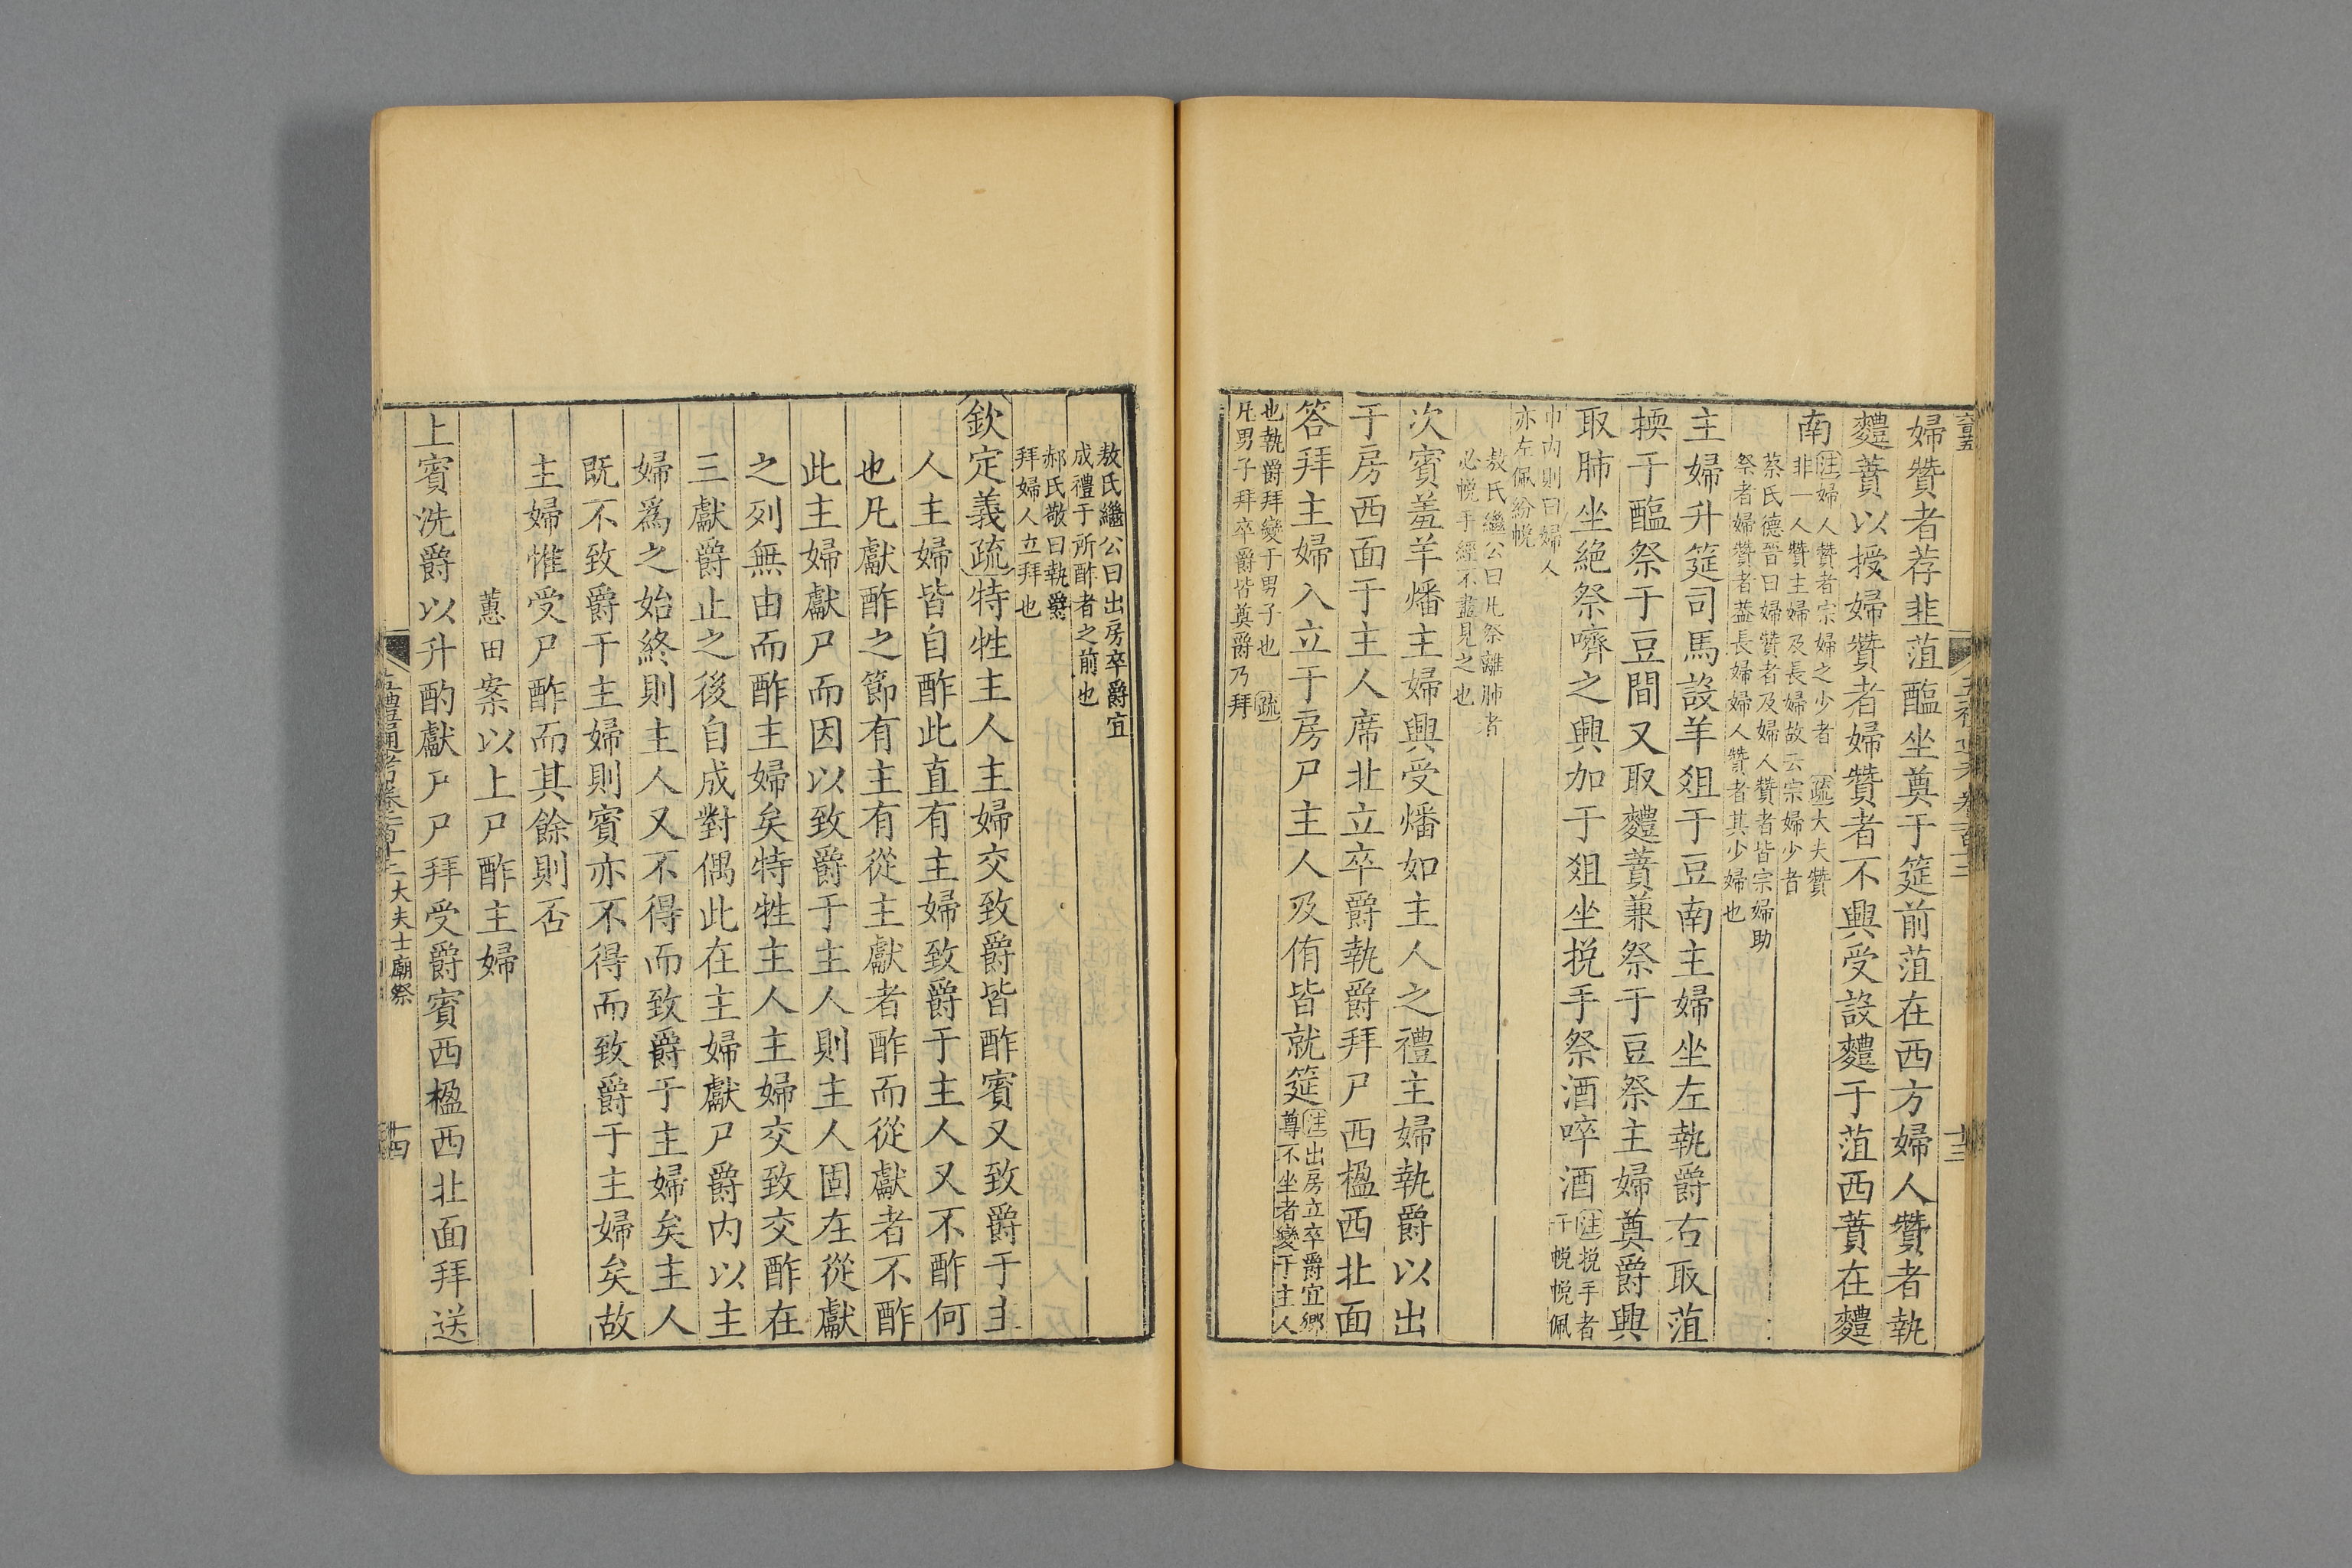 婦贊者荐韭菹醢坐奠于筵前菹在西方婦人贊者執
麷蕡以授婦贊者婦贊者不興受設麷于菹西蕡在麷
南
注婦人贊者宗婦之少者 疏大夫贊
非一人贊主婦及長婦故云宗婦少者
蔡氏德晉曰婦贊者及婦人贊者皆宗婦助
祭者婦贊者葢長婦婦人贊者其少婦也
主婦升筵司馬設羊俎于豆南主婦坐左執爵右取菹
擩于醢祭于豆間又取麷蕡兼祭于豆祭主婦奠爵興
取肺坐絶祭嚌之興加于俎坐挩手祭酒啐酒
注挩手者
于帨帨佩
巾內則曰婦人
亦左佩紛帨
敖氏繼公曰凡祭離肺者
必帨手經不盡見之也
次賓羞羊燔主婦興受燔如主人之禮主婦執爵以出
于房西面于主人席北立卒爵執爵拜尸西楹西北面
答拜主婦入立于房尸主人及侑皆就筵
注出房立卒爵宜鄉
尊不坐者變于主人
也執爵拜變于男子也 疏
凡男子拜卒爵皆奠爵乃拜
敖氏繼公曰出房卒爵宜
成禮于所酢者之前也
郝氏敬曰執爵
拜婦人立拜也
欽定義疏特牲主人主婦交致爵皆酢賓又致爵于主
人主婦皆自酢此直有主婦致爵于主人又不酢何
也凡獻酢之節有主有從主獻者酢而從獻者不酢
此主婦獻尸而因以致爵于主人則主人固在從獻
之列無由而酢主婦矣特牲主人主婦交致交酢在
三獻爵止之後自成對偶此在主婦獻尸爵內以主
婦爲之始終則主人又不得而致爵于主婦矣主人
旣不致爵于主婦則賓亦不得而致爵于主婦矣故
主婦惟受尸酢而其餘則否
蕙田案以上尸酢主婦
上賓洗爵以升酌獻尸尸拜受爵賓西楹西北面拜送
大夫士廟祭